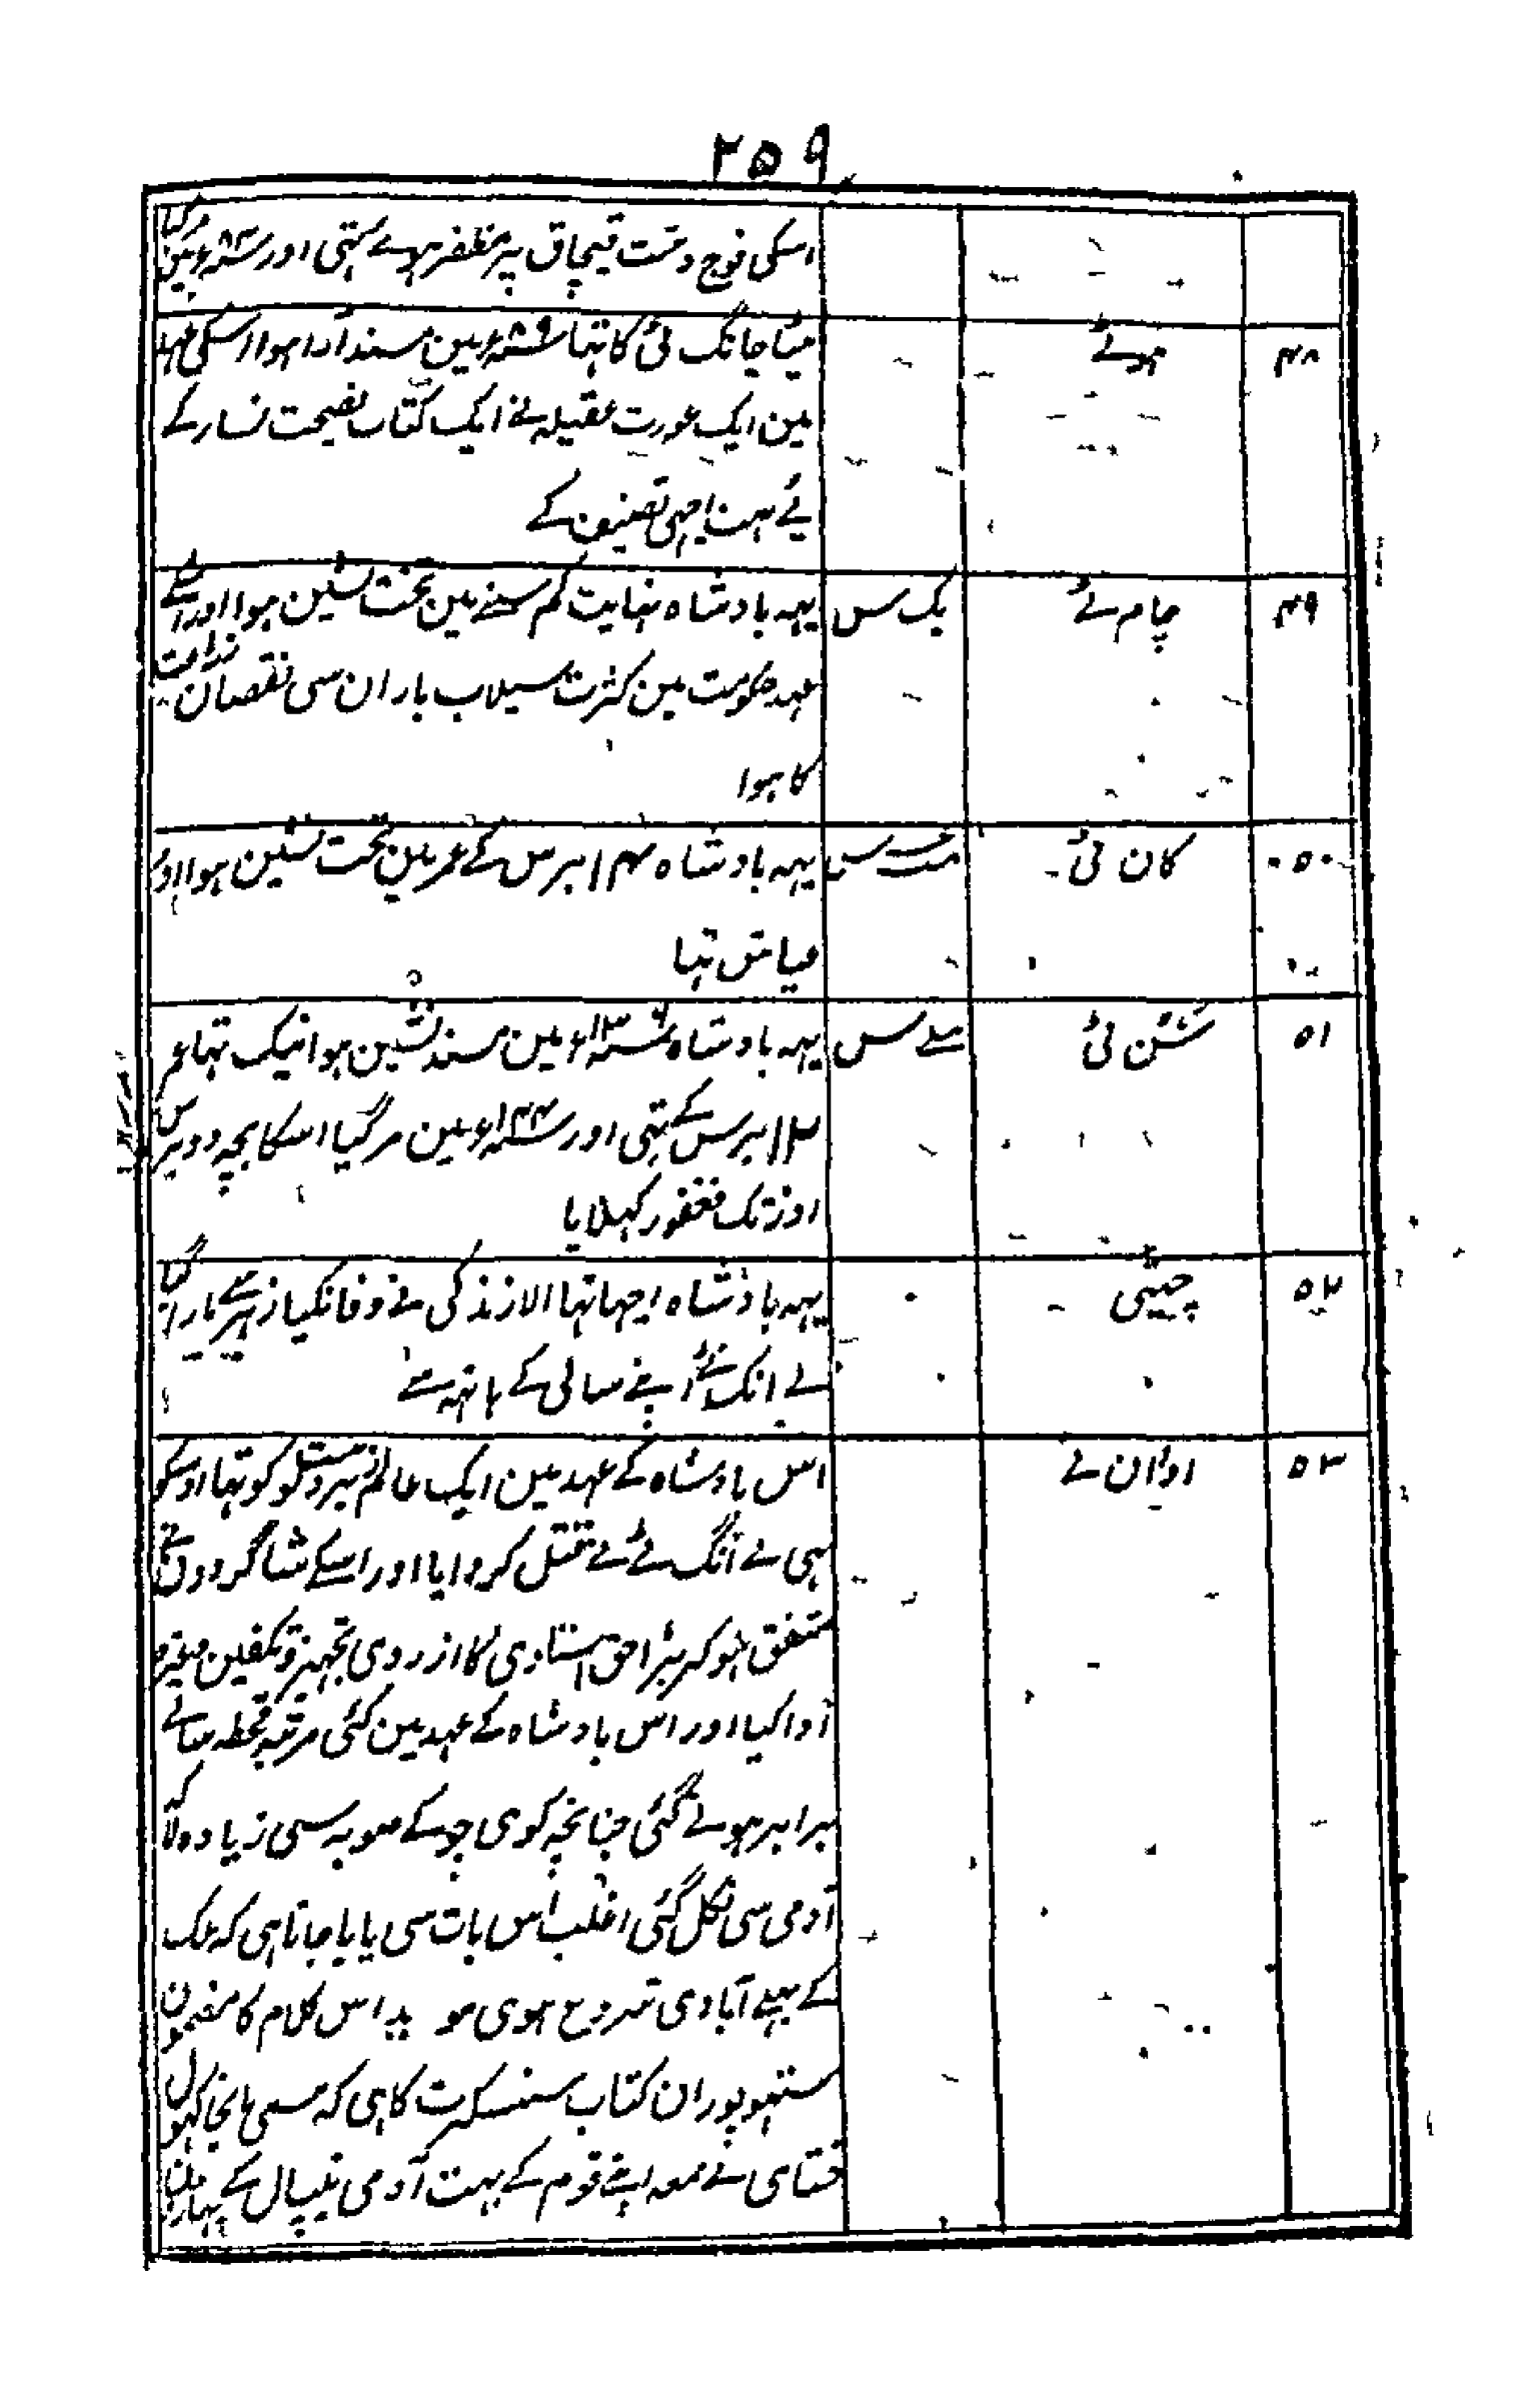 ۲۵۹
اسکی فوج دشت قپچاق پر مظفر ہوے تہی اور سنہ ۸۴ء مین مرگیا
۴۸ ہوٹے بیٹا چانگ ٹی کا تہا سنہ ۸۹ء مین مسند آرا ہوا اسکی عہد
مین ایک عورت عقیلہ نے ایک کتاب نصیحت نسار کے
لئے بہت اچہی تصنیف کے
۴۹ چام ٹے یک س یہہ بادشاہ نہایت کم سنے مین تخت نشین ہوا اور اسکے
عہد حکومت مین کثرت سیلاب باران سی نقصان زراعت
کا ہوا
۵۰ کان ٹی س یہہ بادشاہ ۱۴ برس کے عمر مین تخت نشین ہوا اور
عیاش تہا
۵۱ شن ٹی س یہہ بادشاہ سنہ ۱۲۶ء مین مسند نشین ہوا نیک تہا عمر
۱۲ برس کے تہی اور سنہ ۱۴۴ء مین مر گیا اسکا بچہ دو برس
اوز تک فغفور کہلایا
۵۲ چیٹی یہہ بادشاہ اچہا تہا الا زندگی نے وفا نکیا زہر سے مارا گیا
لے انک ٹے اپنے سالی کے ہاتہہ سے
۵۳ اوان ٹے اس بادشاہ کے عہد مین ایک عالم زبردست کو تہا اوسکو
بہی لے آنگ ٹے نے قتل کروایا اور اسکے شاگردون نے
متفق ہو کر بڑا حق استادی کا از روی تجہیز و تکفین وغیرہ
آدا کیا اور اس بادشاہ کے عہد مین کئی مرتبہ قحطہ سالے
برابر ہوے گئی چنانچہ کوی چو کے صوبہ سی زیادہ لاکہ
آدمی سی نکل گئی اغلب اس بات سی پایا جاتا ہی کہ ملک
کے پہلے آبادی شروع ہوی ہو اس کلام کا مضمون
ستہو پوران کتاب سنسکرت کا ہی کہ مسمی مانجا کہول
ختای نے معہ اپنے قوم کے بہت آدمی نیپال کے پہاڑ مین